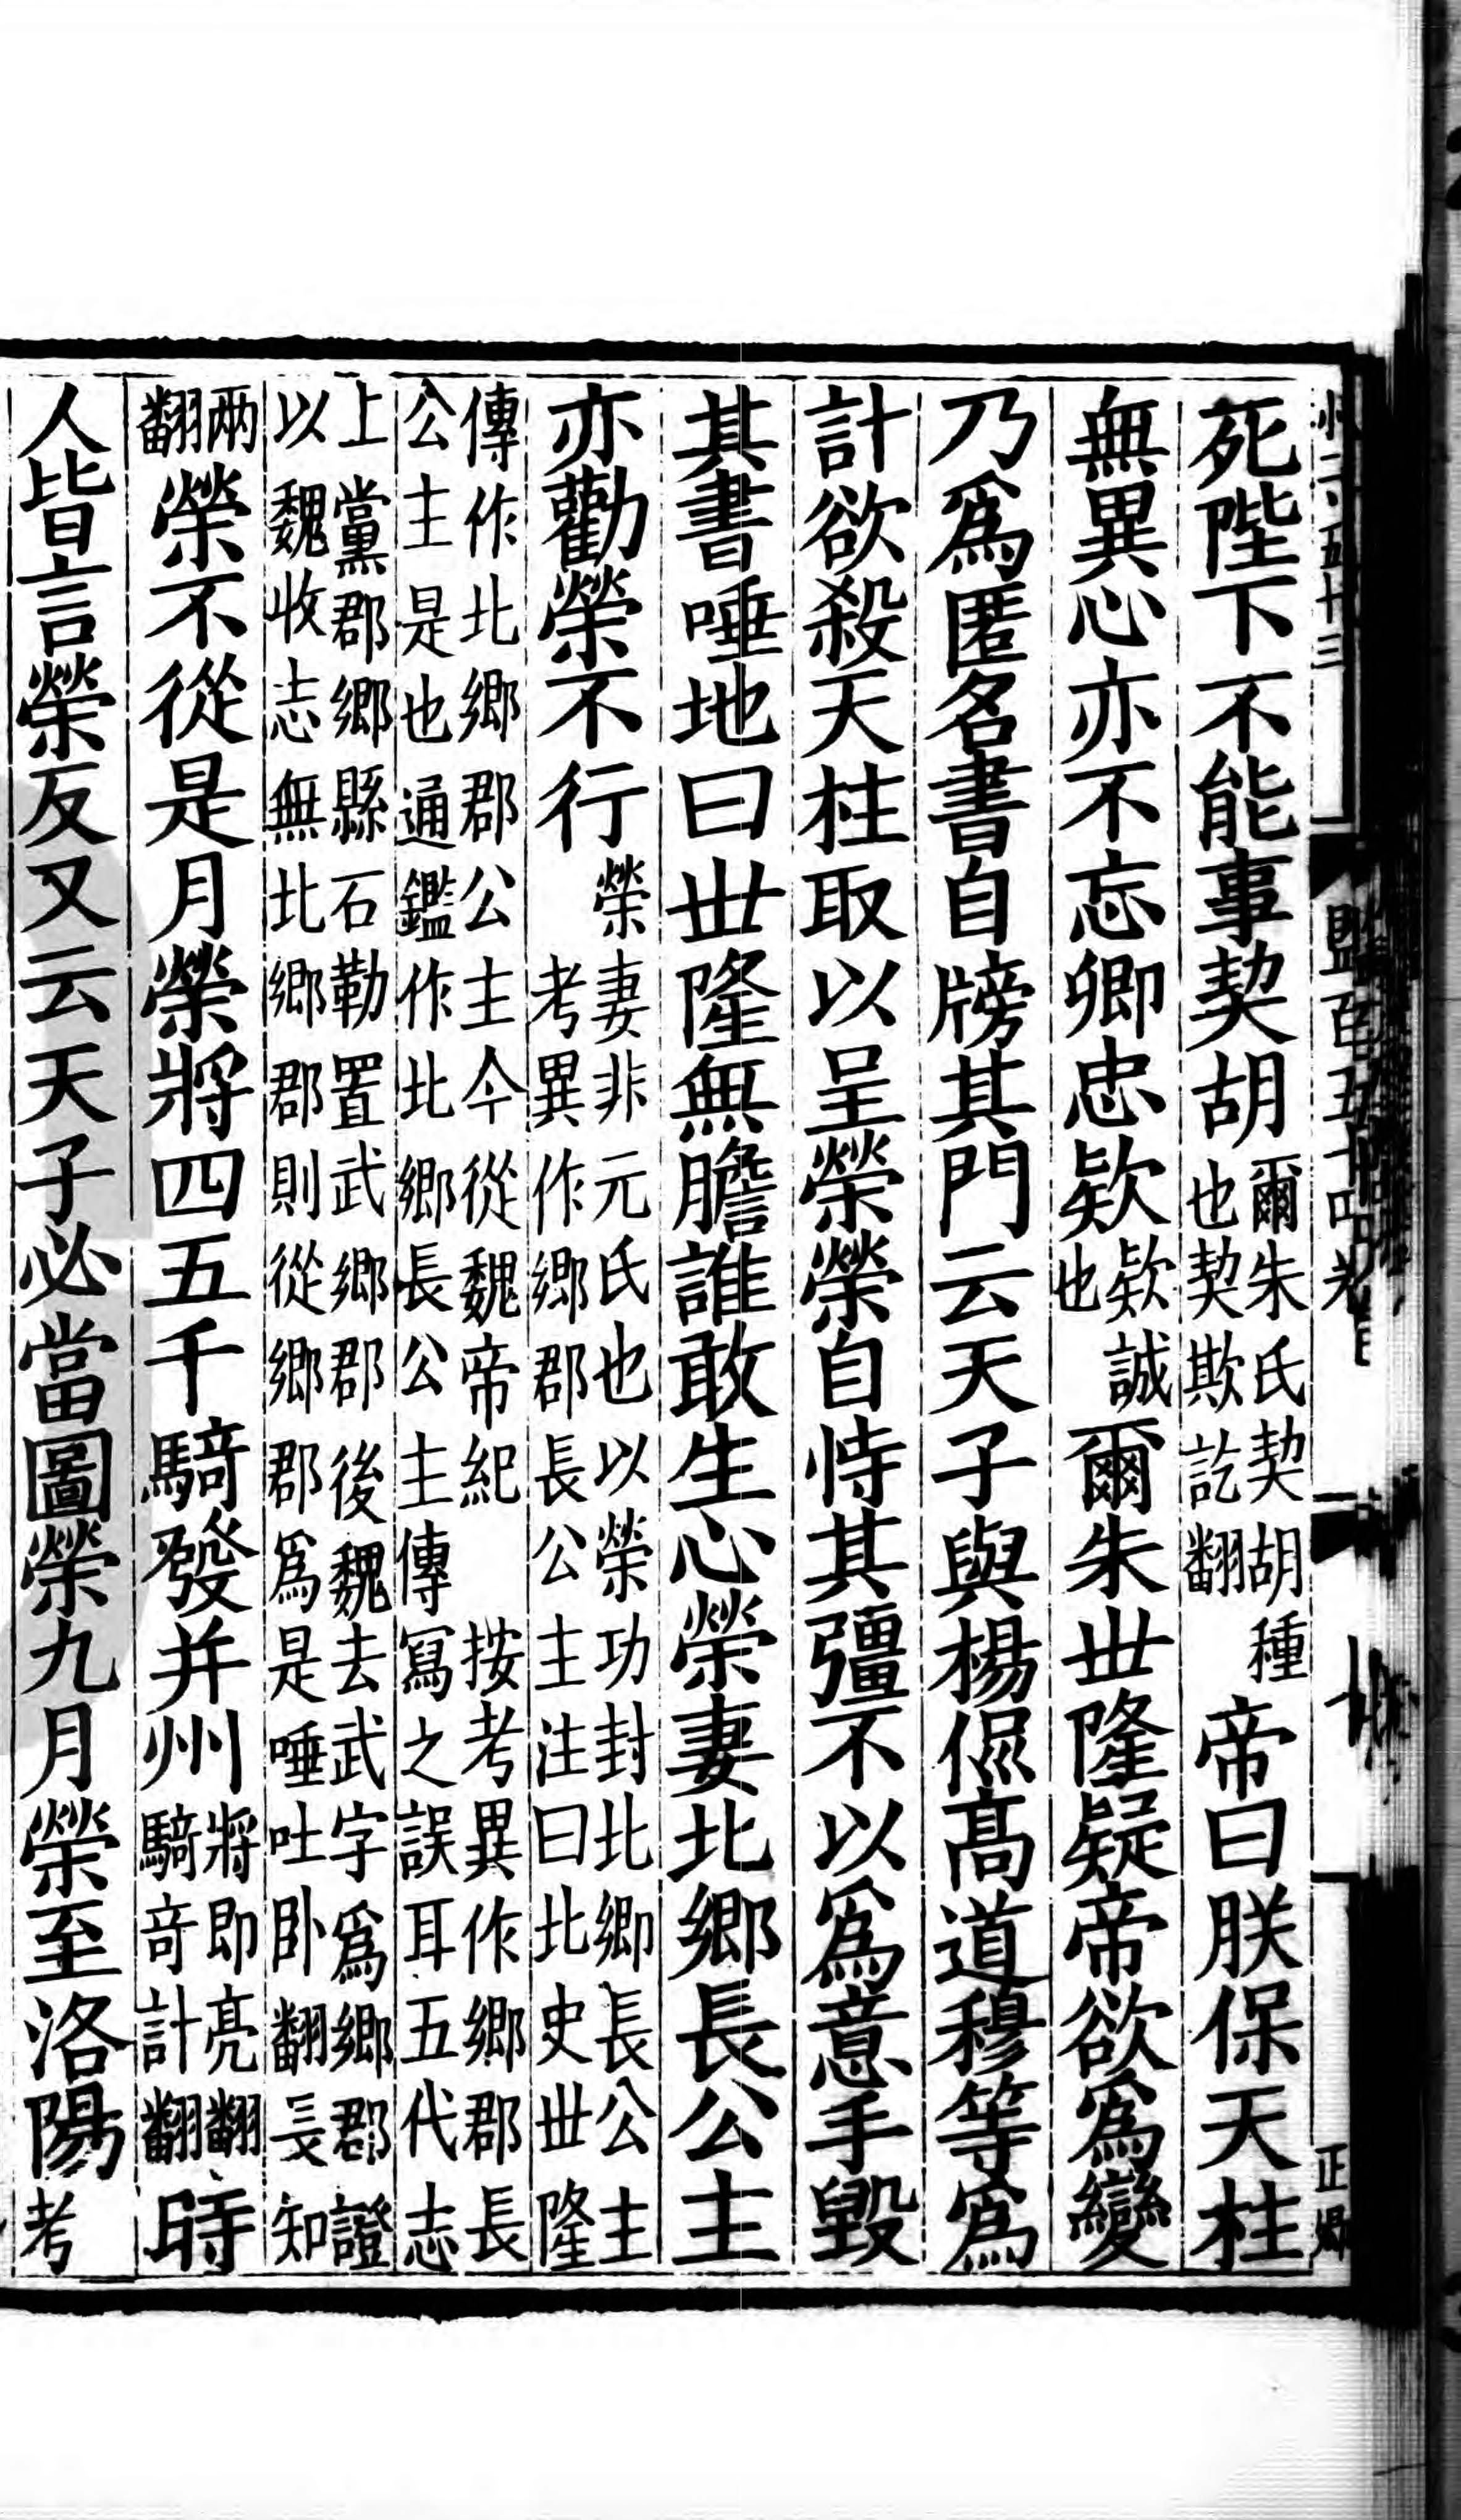 死陛下不能事契胡爾朱氏契胡種也契欺訖翻帝曰朕保天柱
無異心亦不忘卿忠欵欵誠也爾朱世隆疑帝欲爲變
乃爲匿名書自牓其門云天子與楊侃髙道穆等爲
計欲殺天柱取以呈榮榮自恃其彊不以爲意手毀
其書唾地曰世隆無膽誰敢生心榮妻北鄉長公主
亦勸榮不行榮妻非元氏也以榮功封北鄉長公主考異作鄉郡長公主注曰北史世隆
傳作北鄉郡公主今從魏帝紀按考異作鄉郡長公主是也通鑑作北鄉長公主傳寫之誤耳五代志
上黨郡鄉縣石勒置武鄉郡後魏去武字爲鄉郡證以魏收志無北鄉郡則從鄉郡爲是唾吐卧翻長知
兩翻榮不從是月榮將四五千騎發并州將即亮翻騎竒計翻時
人皆言榮反又云天子必當圖榮九月榮至洛陽考